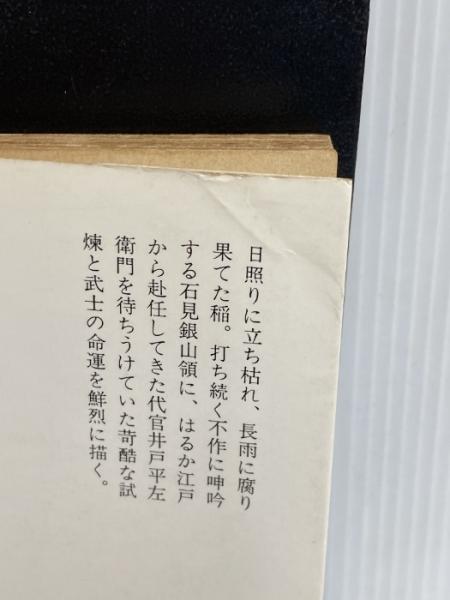 日照りに立ち枯れ、長雨に腐り
果てた稲。打ち続く不作に呻吟
する石見銀山領に、はるか江戸
から赴任してきた代官井戸平左
衛門を待ちうけていた苛酷な試
煉と武士の命運を鮮烈に描く。